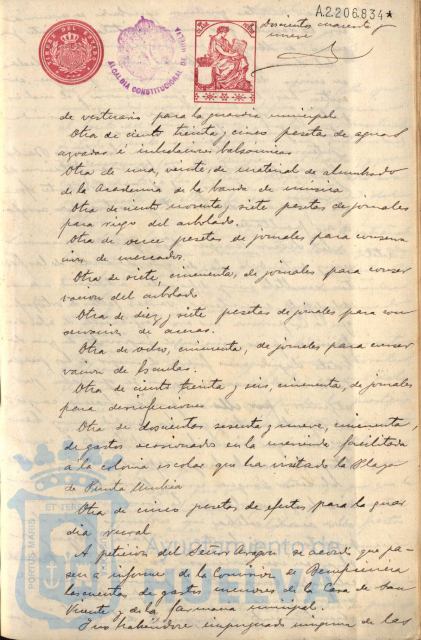 A.2.206.834*
Doscientos cuarenta y
nueve
ALCALDIA CONSTITUCIONAL DE HUELVA
de vestuario para la guardia municipal
Otra de ciento treinta y cinco pesetas de aguas
azoadas é inhalaciones balsamicas
Otra de una, veinte, de material de alumbrado
de la Academia de la banda de musica
Otra de ciento noventa y siete pesetas de jornales
para riego del arbolado.
Otra de once pesetas de jornales para conserva
cion de mercados.
Otra de siete, cincuenta, de jornales para conser
vacion del arbolado
Otra de diez y siete pesetas de jornales para con
servacion de aceras.
Otra de ocho, cincuenta, de jornales para conser
vacion de Escuelas.
Otra de ciento treinta y seis, cincuenta, de jornales
para desinfecciones
Otra de doscientas sesenta y nueve, cincuenta,
de gastos ocasionados en la merienda facilitada
á la colonia escolar que ha visitado la Playa
de Punta Umbria
Otra de cinco pesetas de efectos para la guar
dia rural
A peticion del Señor Aragon se acordó que pa-
sen a informe de la Comision de Beneficencia
las cuentas de gastos menores de la Casa de San
Vicente y de la farmacia municipal.
Y no habiéndose impugnado ninguna de las
PORTUS MARIS
ET TERRÆ
Ayuntamiento de
HUELVA